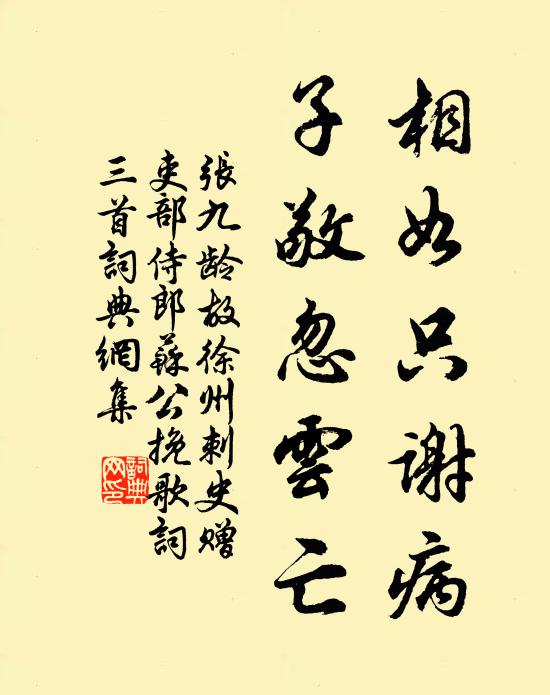 相如只谢病
子敬忽雲亡
張九龄故徐州刺史赠
吏部侍郎蘇公挽歌詞
三首詞典網集
詞典网印